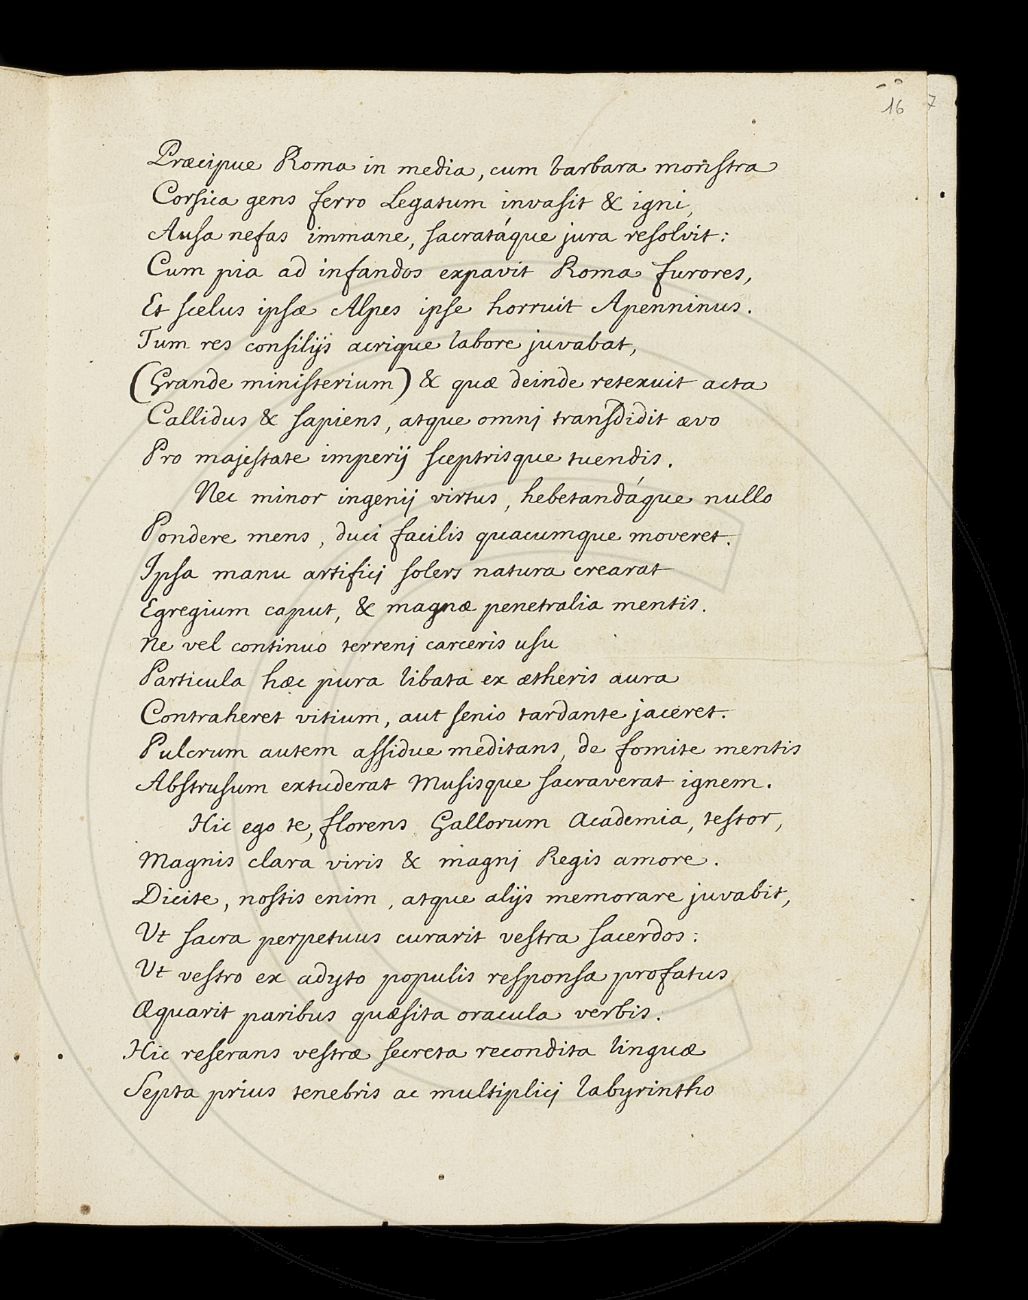 16
7
Præcipue Roma in media, cum barbara monstra
Corsica gens ferro Legatum invasit & igni,
Ausa nefas immane, sacratáque jura resolvit:
Cum pia ad infandos expavit Roma furores,
Et scelus ipsæ Alpes ipse horruit Apenninus.
Tum res consilijs acrique labore juvabat,
(Grande ministerium) & quæ deinde retexuit acta
Callidus & sapiens, atque omnj transdidit ævo
Pro majestate imperij sceptrisque tuendis.
Nec minor ingenij virtus, hebetandáque nullo
Pondere mens, duci facilis quacumque moveret.
Ipsa manu artificj solers natura crearat
Egregium caput, & magnæ penetralia mentis.
Ne vel continuo terrenj carceris usu
Particula hæc pura libata ex ætheris aura
Contraheret vitium, aut senio tardante jaceret.
Pulcrum autem assidue meditans, de fomite mentis
Abstrusum extuderat Musisque sacraverat ignem.
Hic ego te, florens Gallorum Academia, testor,
Magnis clara viris & magnj Regis amore.
Dicite, nostis enim, atque alijs memorare juvabit,
Ut sacra perpetuus curarit vestra sacerdos:
Ut vestro ex adyto populis responsa profatus
Æquarit paribus quæsita oracula verbis.
Hic reserans vestræ secreta recondita linguæ
Septa prius tenebris ac multiplicj labyrintho